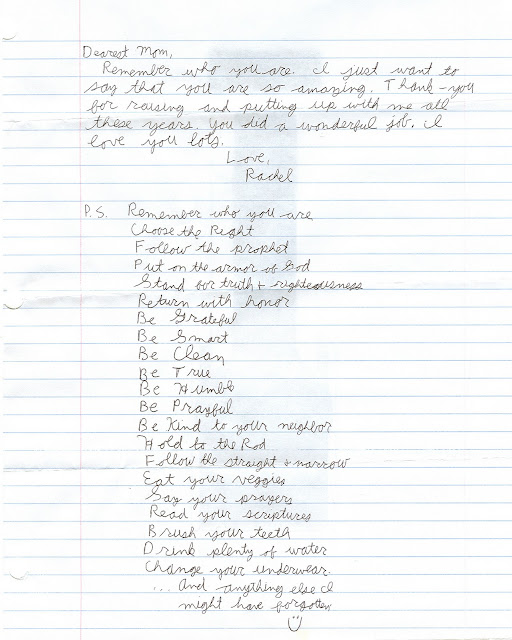 Dearest Mom,
Remember who you are. I just want to
say that you are so amazing. Thank-you
for raising and putting up with me all
these years. You did a wonderful job. I
love you lots.
Love,
Rachel
P.S. Remember who you are
Choose the Right
Follow the prophet
Put on the armor of God
Stand for truth + righteousness
Return with honor
Be Grateful
Be Smart
Be Clean
Be True
Be Humble
Be Prayful
Be Kind to your neighbor
Hold to the Rod
Follow the straight + narrow
Eat your veggies
Say your prayers
Read your scriptures
Brush your teeth
Drink plenty of water
Change your underwear.
... And anything else I
might have forgotten